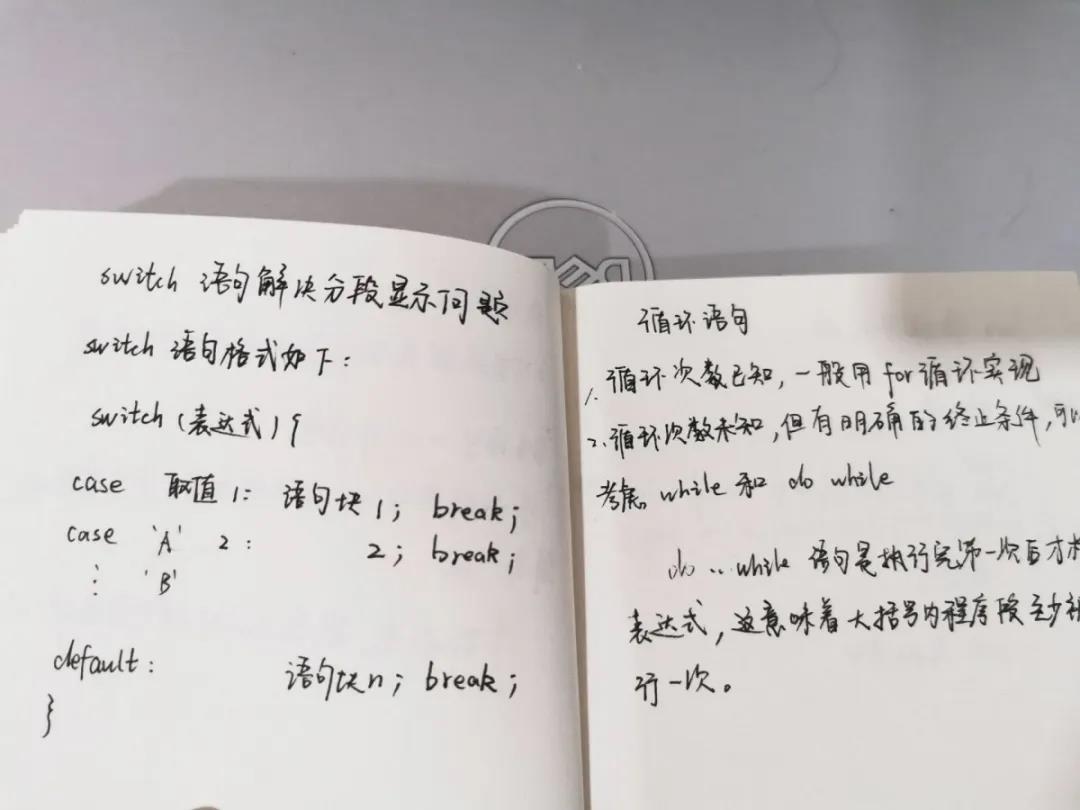 switch 语句解决分段显示问题
switch 语句格式如下:
switch (表达式) {
case 取值 1: 语句块 1; break;
case 'A' 2: 2; break;
⋮ 'B'
default: 语句块 n; break;
}
循环语句
1. 循环次数已知, 一般用 for 循环实现
2. 循环次数未知, 但有明确的终止条件, 可以
考虑 while 和 do while
do .. while 语句是执行完第一次后才
表达式, 这意味着大括号内程序段至少被
行一次。
DELL